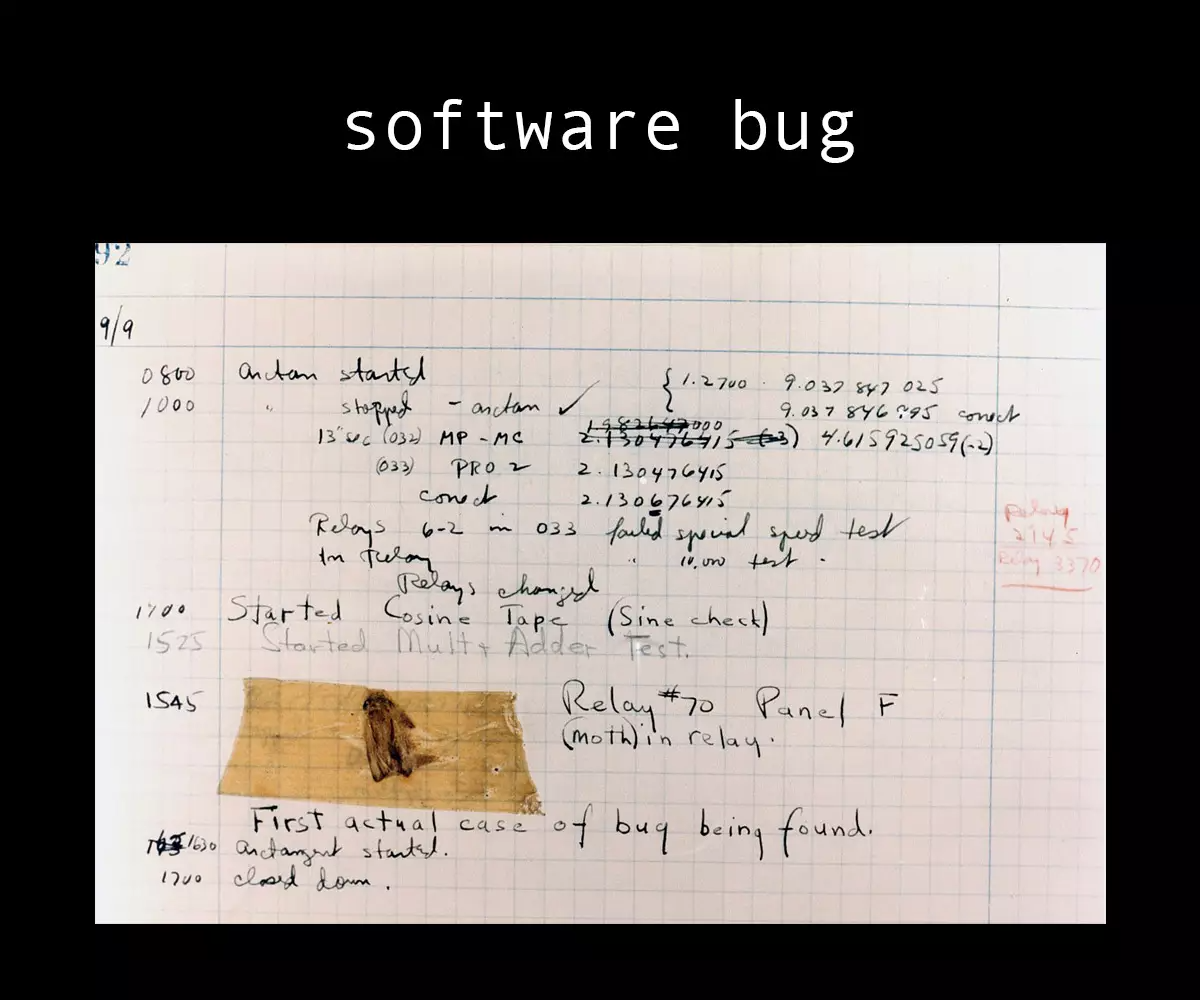 software bug
92
9/9
0800 arctan started
1000 " stopped - arctan ✓ { 1.2700 · 9.037 847 025
9.037 846 995 conect
13" sec (032) MP - MC 2.130476415 (-3) 4.615925059(-2)
(033) PRO 2 2.130476415
conect 2.130676415
Relays 6-2 in 033 failed special speed test
In Relay " 10,000 test .
Relays changed
Relay
2145
Relay 3370
1700 Started Cosine Tape (Sine check)
1525 Started Mult + Adder Test.
1545 Relay #70 Panel F
(moth) in relay.
First actual case of bug being found.
1630 arctangent started.
1700 closed down.